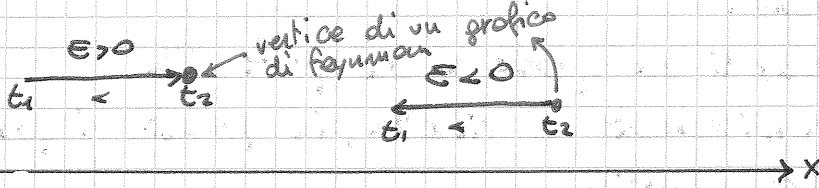 vertice di un grafico
di Feynman
E>0
t1 < t2
E<0
t1 < t2
x